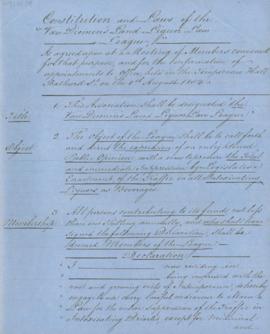 Constitution and Laws of the
Van Diemens Land Liquor Law
League
As agreed upon at a Meeting of Members convened
for that purpose, and for the confirmation of
appointments to Office, held in the Temperance Hall,
Bathurst St. on the August 1854
Title
1. This Association shall be designated "The
Van Diemens Land Liquor Law League"
Object
2. The Object of the League shall be to call forth
and the expression of an enlightened
Public Opinion with a view to the total
and immediate Suppression by Legislative
Enactment of the Traffic in all Intoxicating
Liquors as Beverages
Membership
3. All persons contributing to its funds not less
than one shilling annually, and who shall have
signed the following Declaration, shall be
deemed Members of the League
Declaration
I now residing in
being impressed with the
vast and growing evils of Intemperance; whereby
engage to use every lawful endeavour to
Law for the entire Suppression of the Traffic in
Intoxicating Drinks except for Medicinal
and